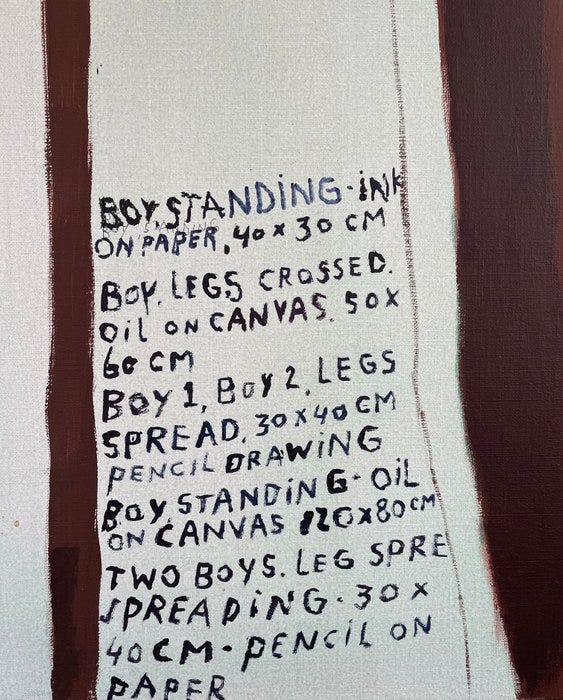 BOY STANDING · iNK
ON PAPER, 40 x 30 CM
BOY. LEGS CROSSED.
OiL ON CANVAS. 50X
60 CM
BOY 1, BOY 2, LEGS
SPREAD. 30 X 40 CM
PENCIL DRAWiNG
BOY STANDiNG · OiL
ON CANVAS 120x80CM
TWO BOYS. LEG SPRE
SPREADiNG · 30 X
40 CM · PENCiL ON
PAPER